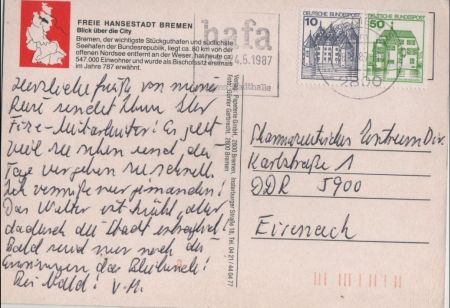 FREIE HANSESTADT BREMEN
Blick über die City
Bremen, der wichtigste Stückguthafen und südlichste
Seehafen der Bundesrepublik, liegt ca. 80 km von der
offenen Nordsee entfernt an der Weser, hat heute ca.
547.000 Einwohner und wurde als Bischofssitz erstmals
im Jahre 787 erwähnt.
hafa
4.5.1987
Stadthalle
DEUTSCHE BUNDESPOST
10
DEUTSCHE BUNDESPOST
50
2800
Herzliche Grüße von meiner
Reise sendet Ihnen Ihr
Mitarbeiter! Es
viel zu sehen und die
Tage vergehen zu schnell.
Ich vermisse nur jemanden!
Das Wetter ist kühl, aber
dadurch die Stadt
Bald sind nur noch die
Erinnerungen das Bleibende!
Bis bald!
Verlag: Papeterie GmbH, 2800 Bremen, Insterburger Straße 18, Tel. 04 21/44 04 77
Foto: Günter Garbrecht, 2820 Bremen
Pharmazeutisches Zentrum
Karlstraße 1
DDR 5900
Eisenach